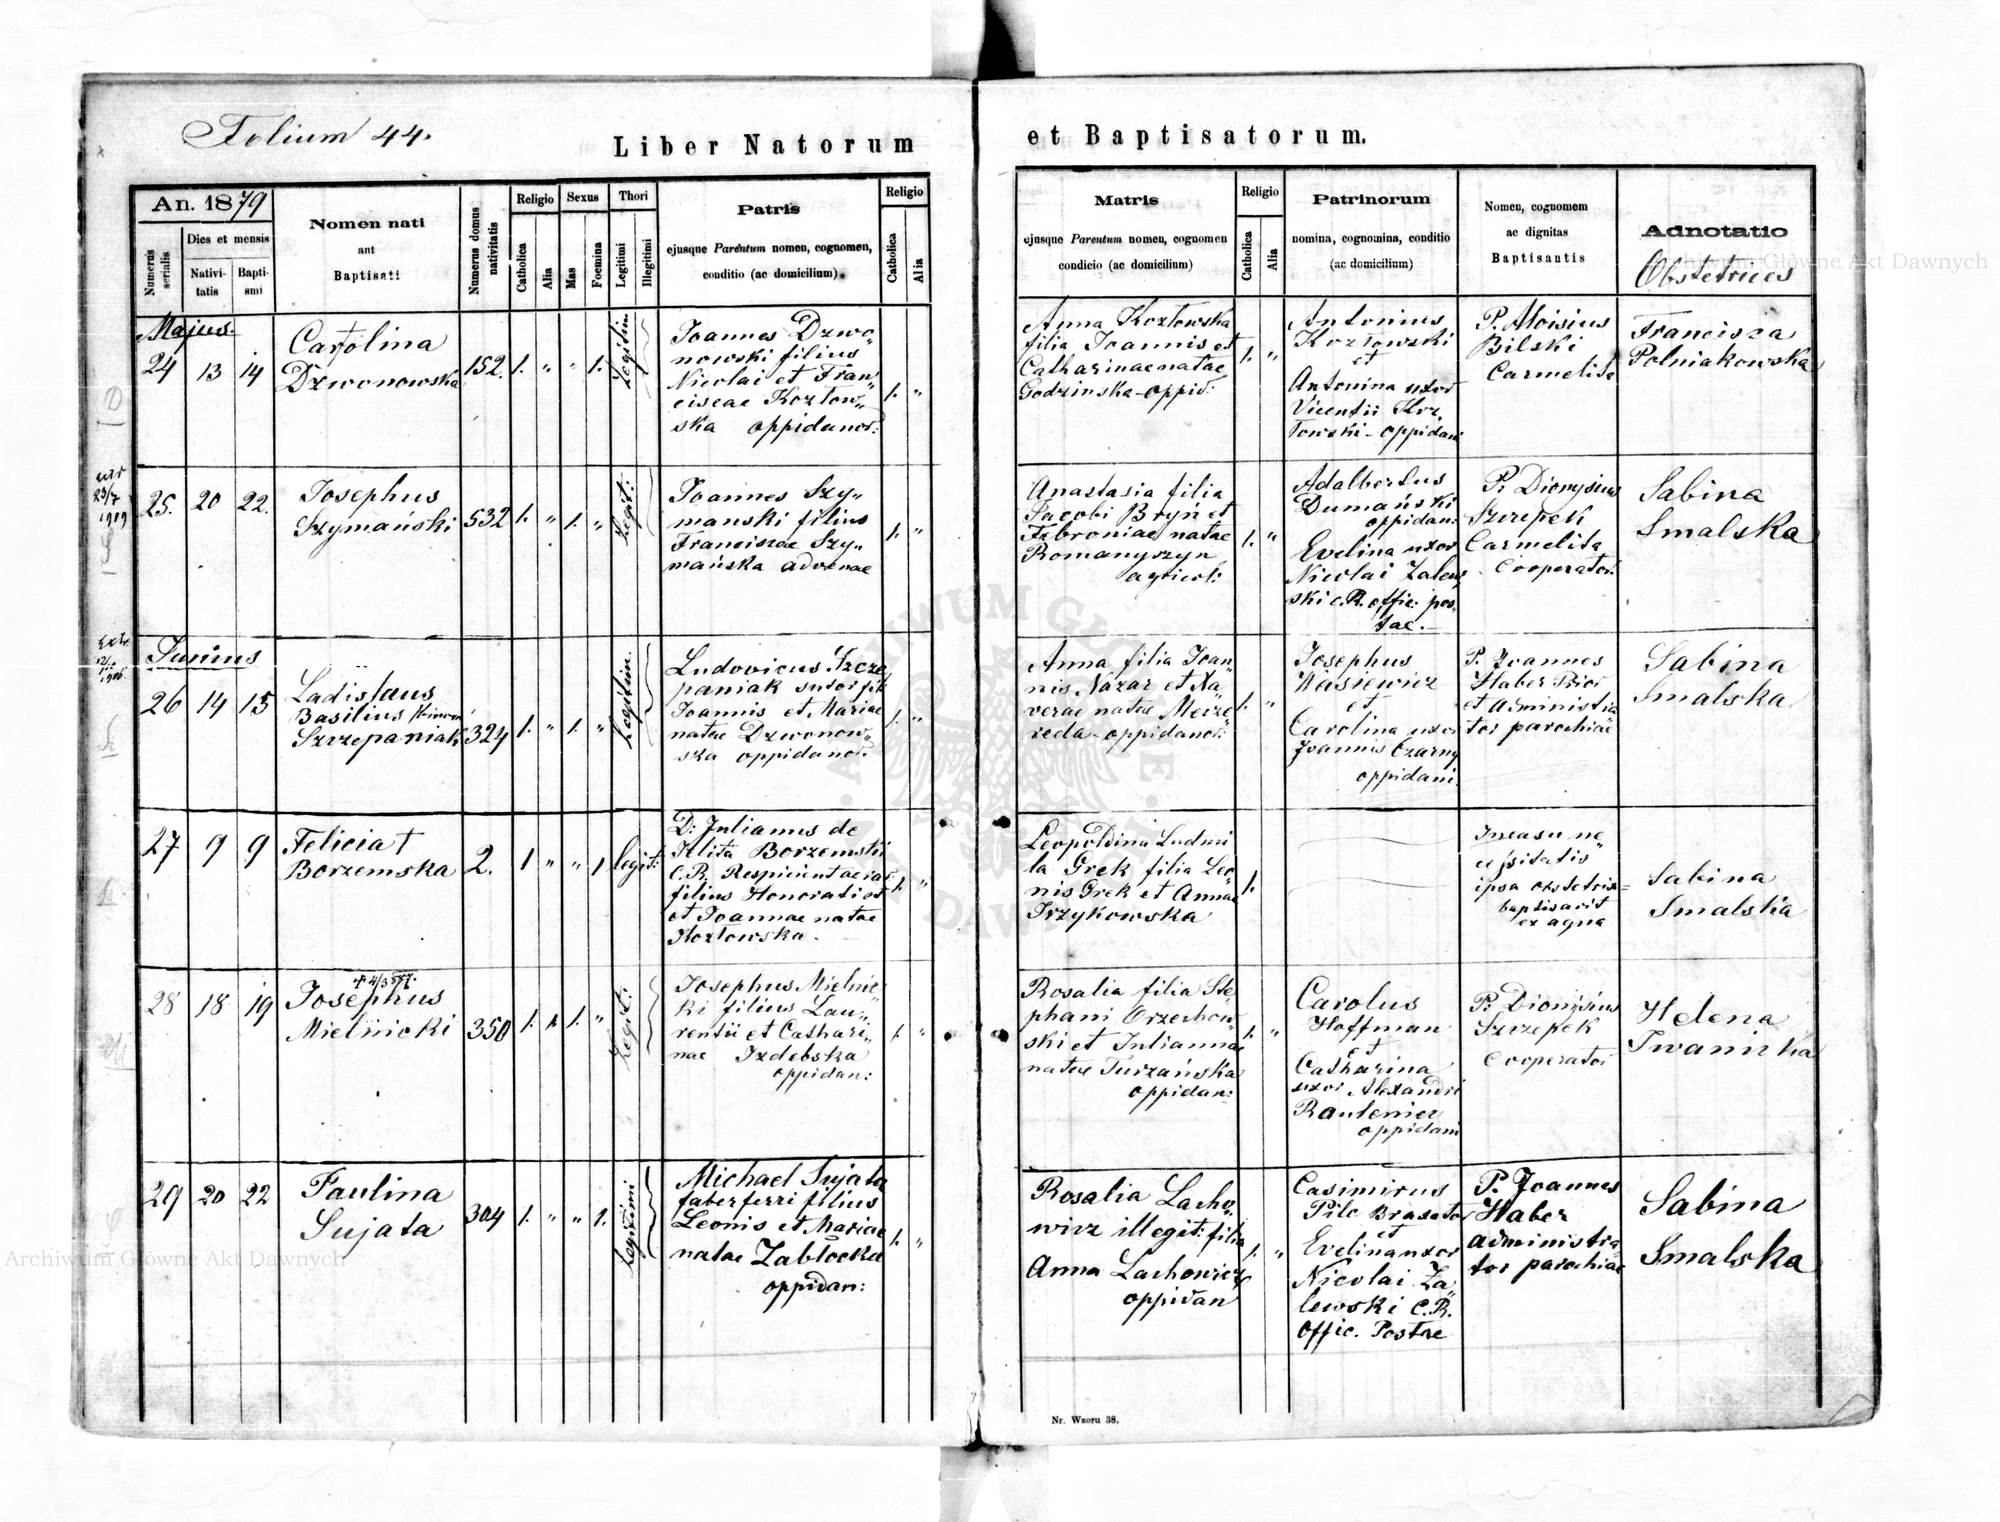 Folium 44.
Liber Natorum
et Baptisatorum.
An. 1879
Numerus serialis
Dies et mensis
Nativi-
tatis
Bapti-
smi
Nomen nati
ant
Baptisati
Numerus domus nativitatis
Religio
Catholica
Alia
Sexus
Mas
Foemina
Thori
Legitimi
Illegitimi
Patris
ejusque Parentum nomen, cognomen,
conditio (ac domicilium).
Religio
Catholica
Alia
Matris
ejusque Parentum nomen, cognomen
condicio (ac domicilium)
Religio
Catholica
Alia
Patrinorum
nomina, cognomina, conditio
(ac domicilium)
Nomen, cognomen
ac dignitas
Baptisantis
Adnotatio
Obstetrices
Majus.
24 13 14
Carolina
Dzwonowska
152. 1. " " 1. Legitim
Joannes Dzwo"
nowski filius
Nicolai et Fran"
ciscae Kozłow"
ska oppidanor:
1. "
Anna Kozłowska
filia Joannis et
Catharinae natae
Godzinska - oppid:
1. "
Antonius
Kozłowski
et
Antonina uxor
Vicentii Koz"
łowski - oppidani
P. Aloisius
Bilski
Carmelita
Francisza
Polniakowska
25. 20 22.
Josephus
Szymański
532 1. " 1. " Legit:
Joannes Szy"
manski filius
Franciszae Szy"
mańska advenae
1. "
Anastasia filia
Jacobi Bryń et
Febroniae natae
Romanyszyn
agricol:
1. "
Adalbertus
Dumański
oppidan:
Evelina uxor
Nicolai Zalew"
ski c. R. offic: pos"
tae.
P. Dionysius
Szczepek
Carmelita
Cooperator
Sabina
Smalska
Junius
26 14 15
Ladislaus
Basilius
Szczepaniak
324 1. " 1. " Legitim.
Ludovicus Szcze"
paniak sutor fil:
Joannis et Mariae
natae Dzwonow"
ska oppidanor.
1. "
Anna filia Joan"
nis Nazar et Xa"
verae natae Meize"
reda - oppidanor:
1. "
Josephus
Wasiewicz
et
Carolina uxor
Joannis Czarny
oppidani
P. Joannes
Haber Prior
et administra
tor parochiae
Sabina
Smalska
27 9 9
Felicia †
Borzemska
2. 1 " " 1 legit:
D: Julianus de
Jelita Borzemski
C. R. Respicient aerar:
filius Honorati et
et Joannae natae
Kozłowska.
1. "
Leopoldina Ludmi
la Grek filia Leo"
nis Grek et Annae
Trzykowska
1.
In casu ne"
cessitatis
ipsa obstetrix
baptisavit
ex aqua
Sabina
Smalska
28 18 19
Josephus
Mielnicki
350 1. " 1. " Legit:
Josephus Mielnic"
ki filius Lau"
rentii et Cathari"
nae Izdebska
oppidan:
1. "
Rosalia filia Ste"
phani Orzechow"
ski et Juliannae
natae Turzańska
oppidan:
1. "
Carolus
Hoffman
et
Catharina
uxor Alexandri
oppidani
P. Dionisius
Szczepek
Cooperator
Helena
Iwanicka
29 20 22
Paulina
Sujata
304 1. " " 1. Legitimi
Michael Sujata
faber ferri filius
Leonis et Mariae
natae Zabłocka
oppidan:
1. "
Rosalia Lacho"
wicz illegit: filia
Anna Lachowicz
oppidan
1. "
Casimirus
Pilc Braxator
et
Evelina uxor
Nicolai Za"
lewski C. R.
Offic. Postae
P. Joannes
Haber
administra
tor parochiae
Sabina
Smalska
Nr. Wzoru 38.
Archiwum Główne Akt Dawnych
Archiwum Główne Akt Dawnych
ARCHIWUM GŁÓWNE AKT DAWNYCH